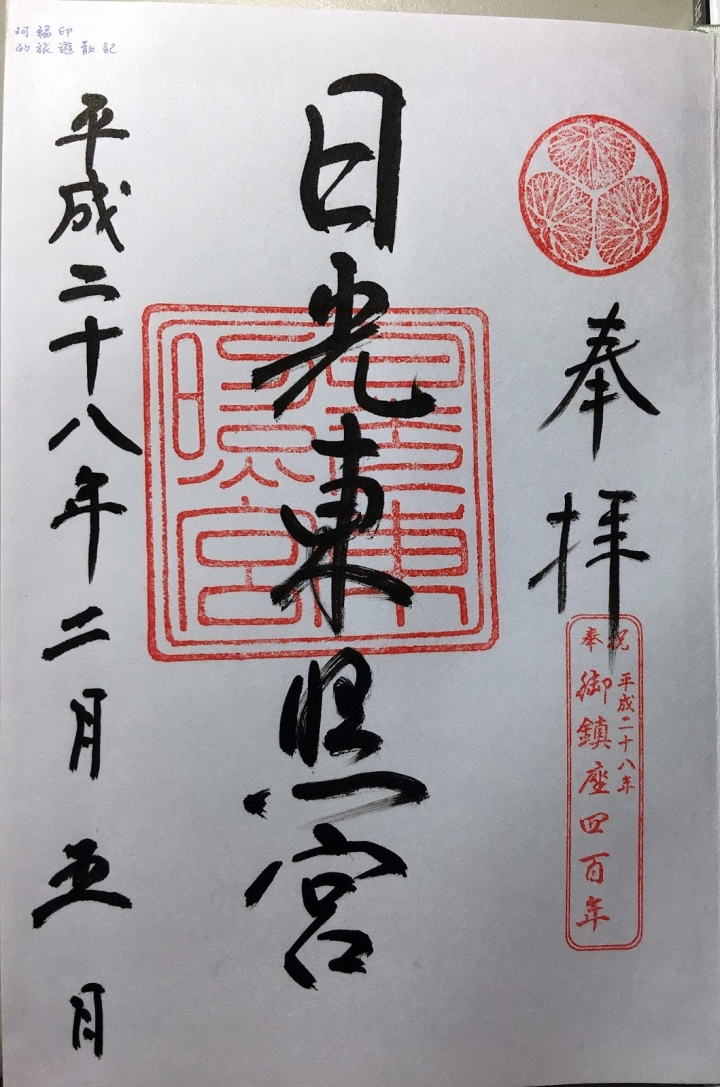 阿印
的旅遊散記
奉拝
奉祝
平成二十八年
御鎮座四百年
日光東照宮
日光東
照宮
平成二十八年二月五日